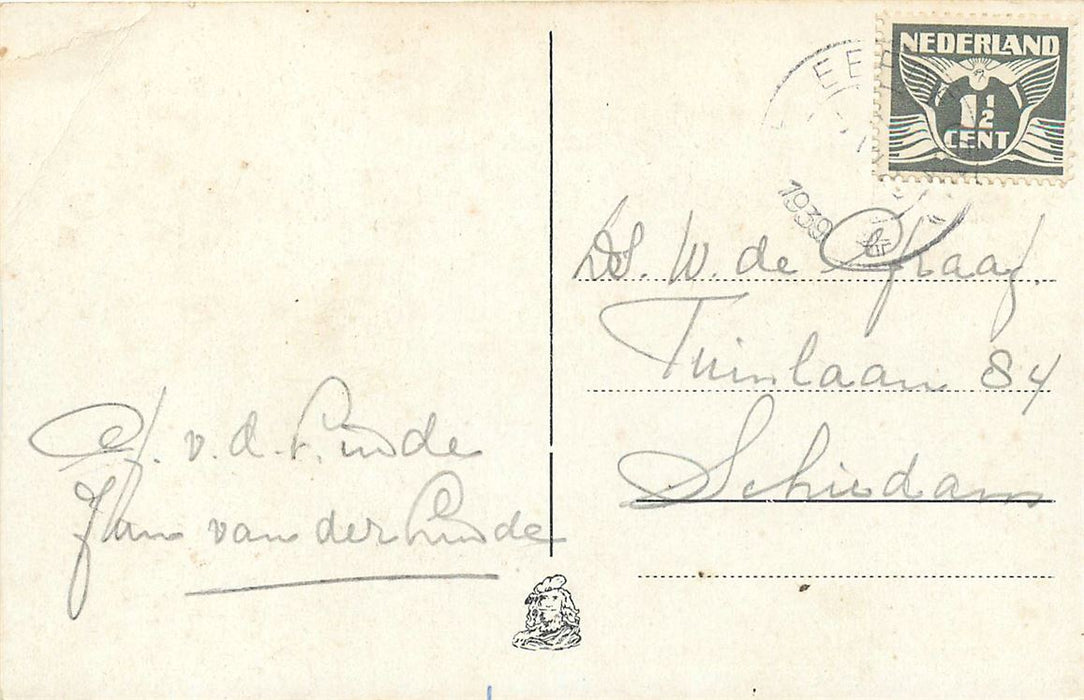 NEDERLAND
1½
CENT
EE
1939
DS. W. de Graaf.
Tuinlaan 84
Schiedam
v. d. Linde
van der Linde